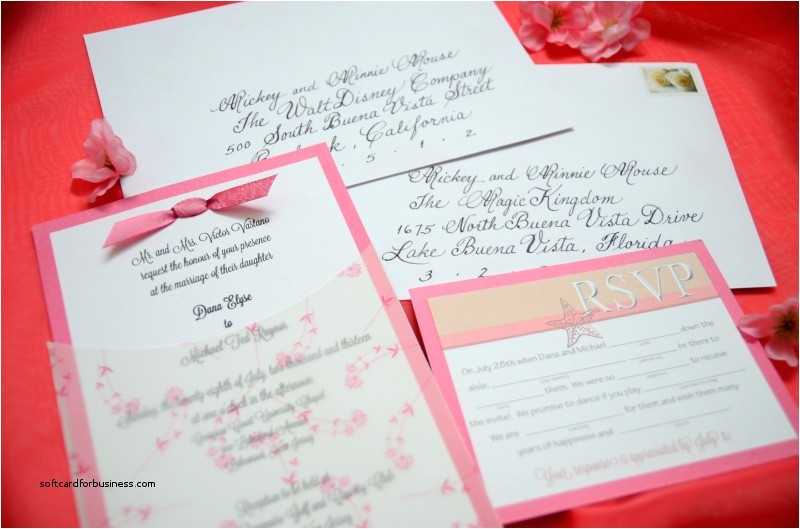 Mickey and Minnie Mouse
The Walt Disney Company
500 South Buena Vista Street
California
5 . 1 . 2
Mickey and Minnie Mouse
The Magic Kingdom
1675 North Buena Vista Drive
Lake Buena Vista, Florida
3 . 2
Mr. and Mrs. Victor Vastano
request the honour of your presence
at the marriage of their daughter
Dana Elyse
to
Michael Ted
Sunday, the twenty eighth of July, two thousand and thirteen
at one o'clock in the afternoon
University Chapel
New Jersey
Reception to be held at
Golf and Country Club
RSVP
On July 28th when Dana and Michael down the
aisle, be there to
them. We were so to receive
the invite! We promise to dance if you play
We are for them and wish them many
years of happiness and
Your response is appreciated by July 1st
softcardforbusiness.com